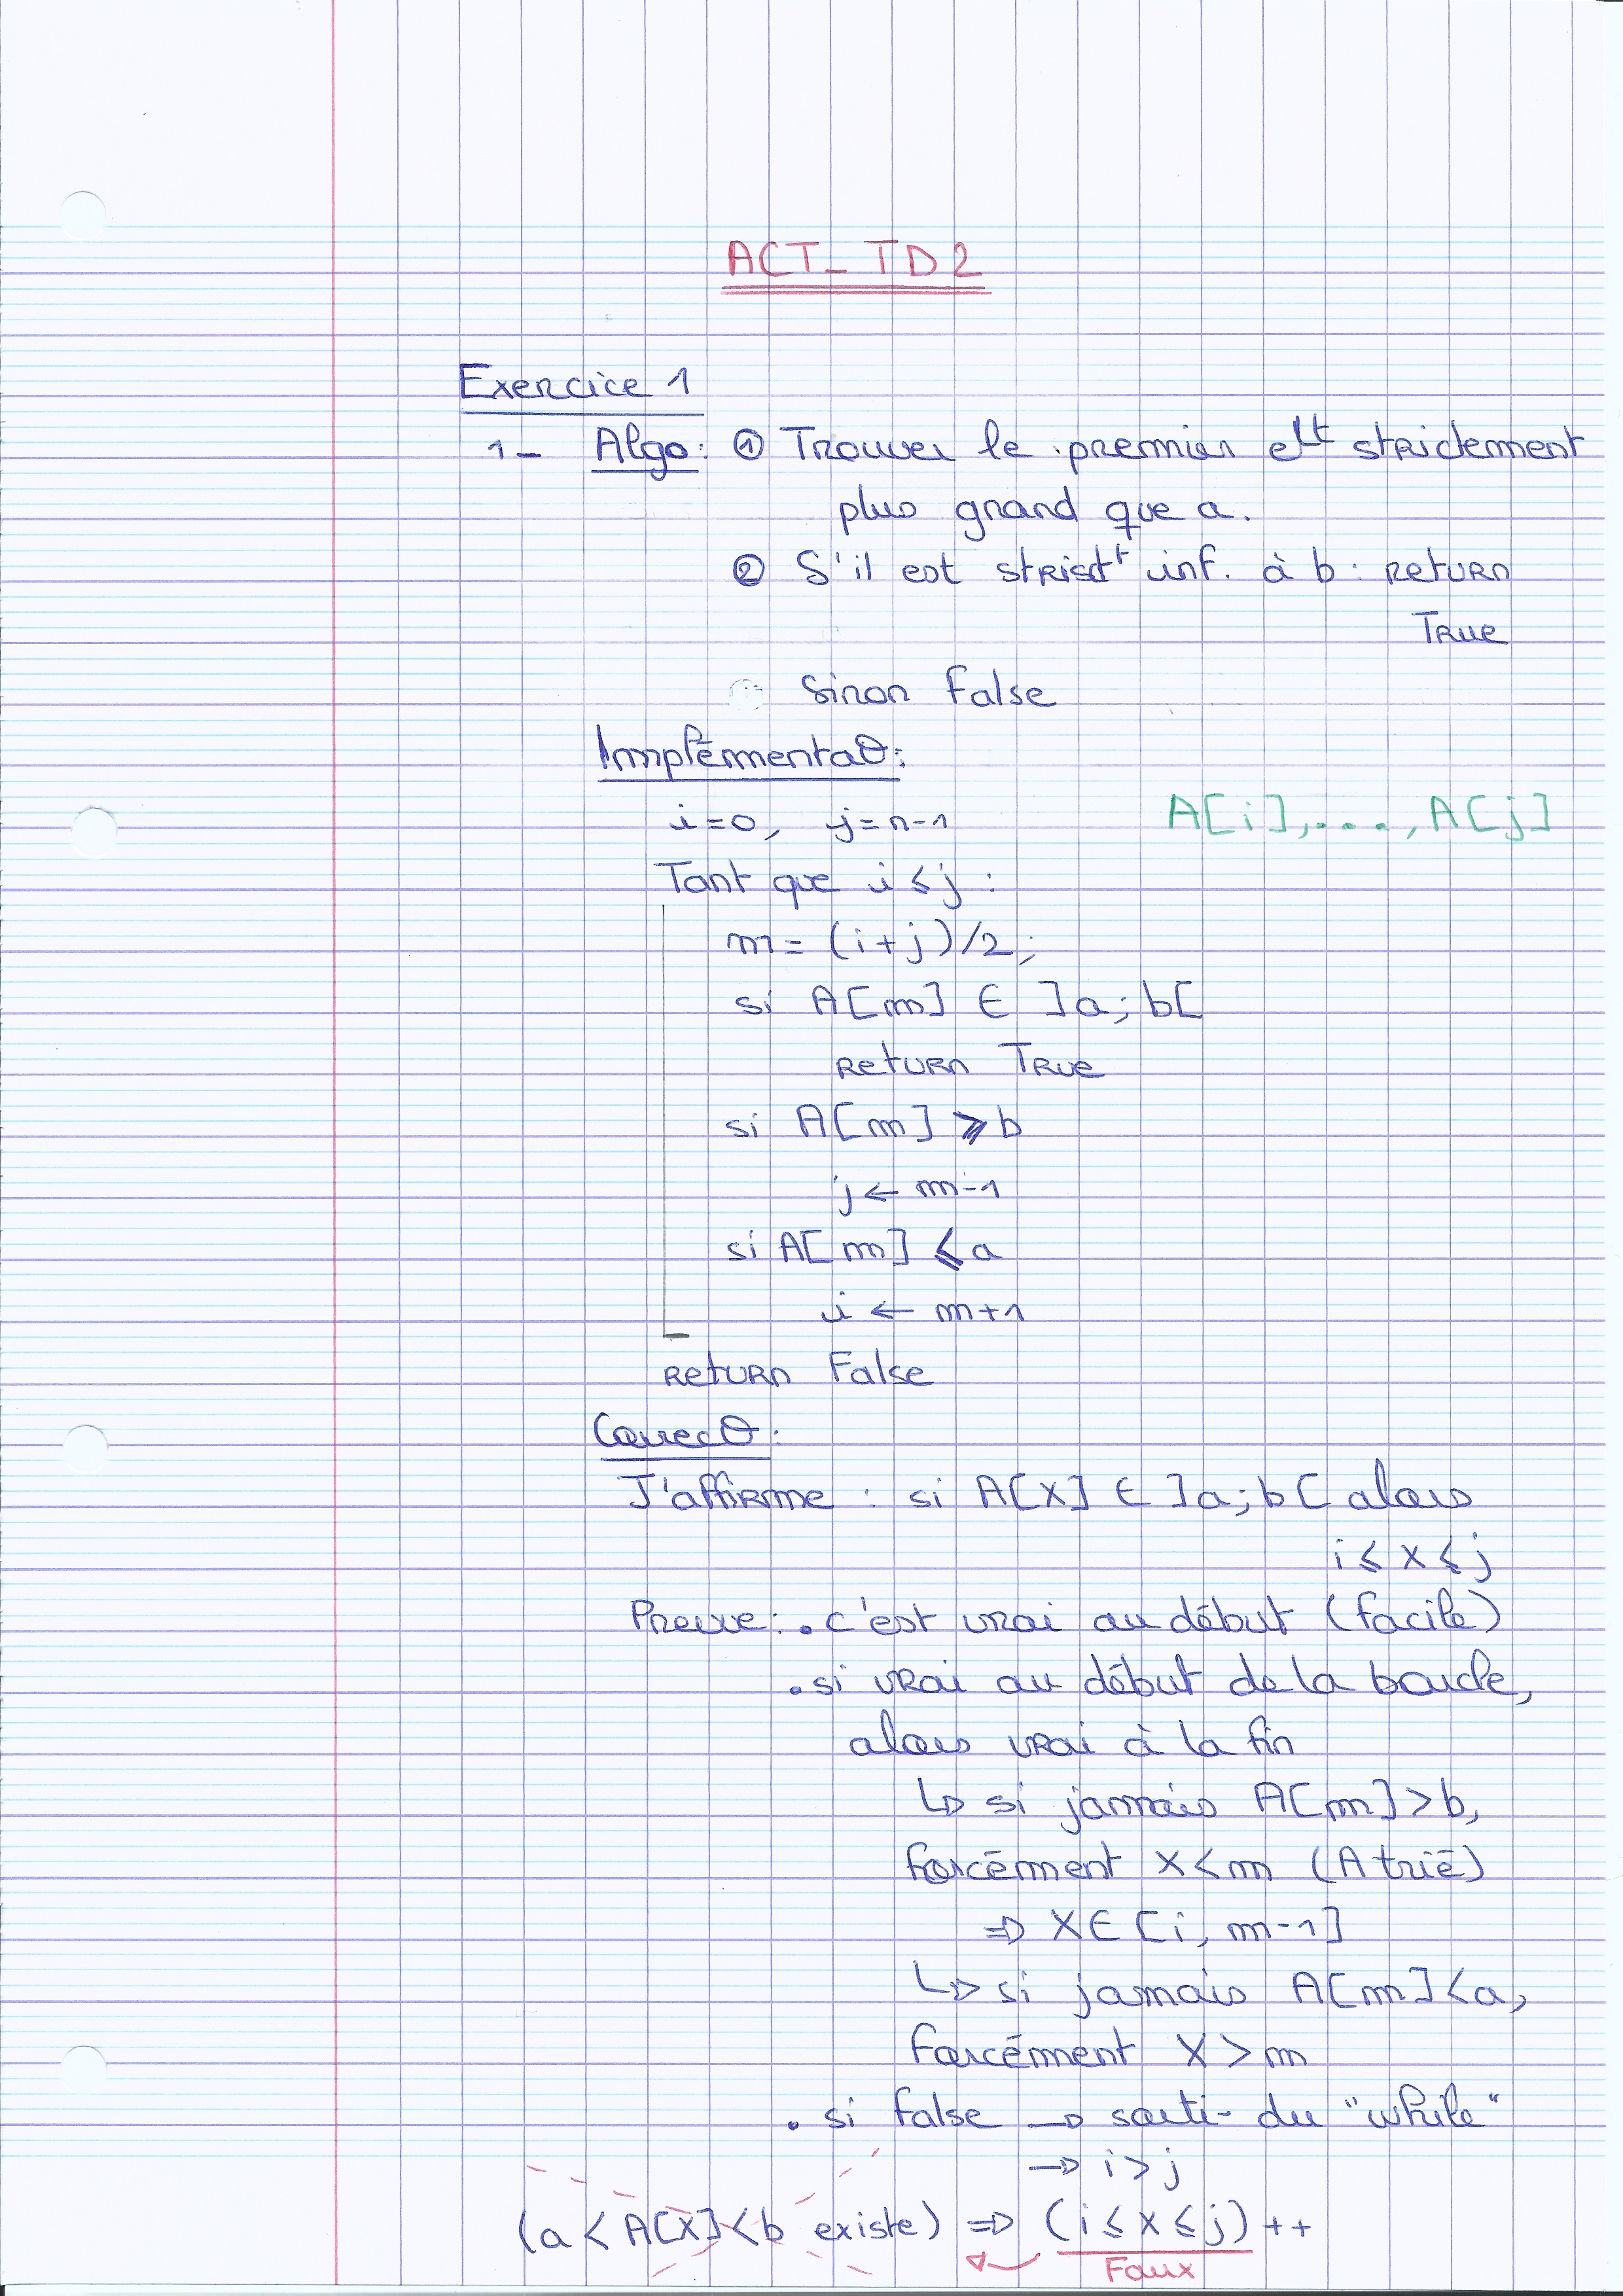 ACT_TD2
Exercice 1
1- Algo: ① Trouver le premier elt strictement
plus grand que a.
② S'il est strictt inf. à b : return
True
sinon False
Implémentaθ:
i=0, j=n-1 A[i],...,A[j]
Tant que i ≤ j :
m = (i+j)/2;
si A[m] ∈ ]a; b[
return True
si A[m] ≥ b
j ← m-1
si A[m] ≤ a
i ← m+1
return False
Correcθ:
J'affirme : si A[X] ∈ ]a; b[ alors
i ≤ X ≤ j
Preuve: . c'est vrai au début (facile)
. si vrai au début de la boucle,
alors vrai à la fin
↳ si jamais A[m] > b,
forcément X < m (A trié)
⇒ X ∈ [i, m-1]
↳ si jamais A[m] < a,
forcément X > m
. si false → sorti du "while"
→ i > j
(a < A[X] < b existe) ⇒ (i ≤ X ≤ j) ++
Faux